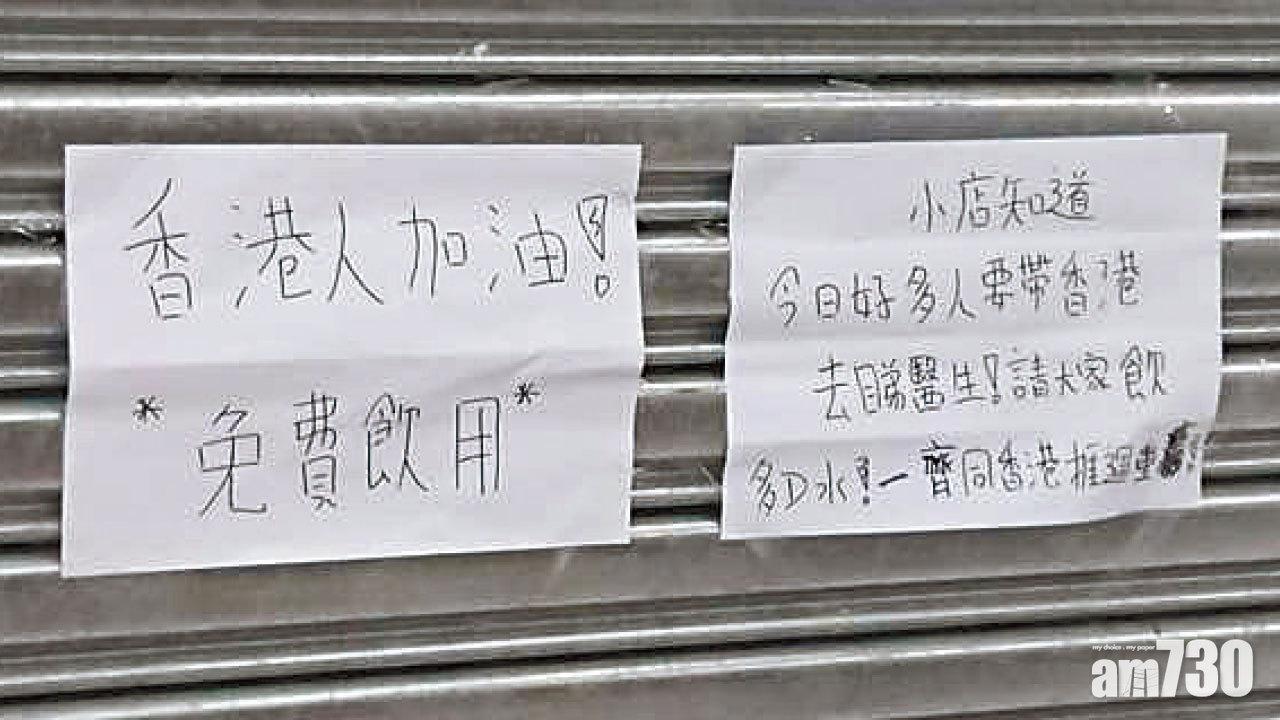 香港人加油!
*免費飲用*
小店知道
今日好多人要帶香港
去睇醫生!請大家飲
多D水!一齊同香港推迴
my choice . my paper
am730